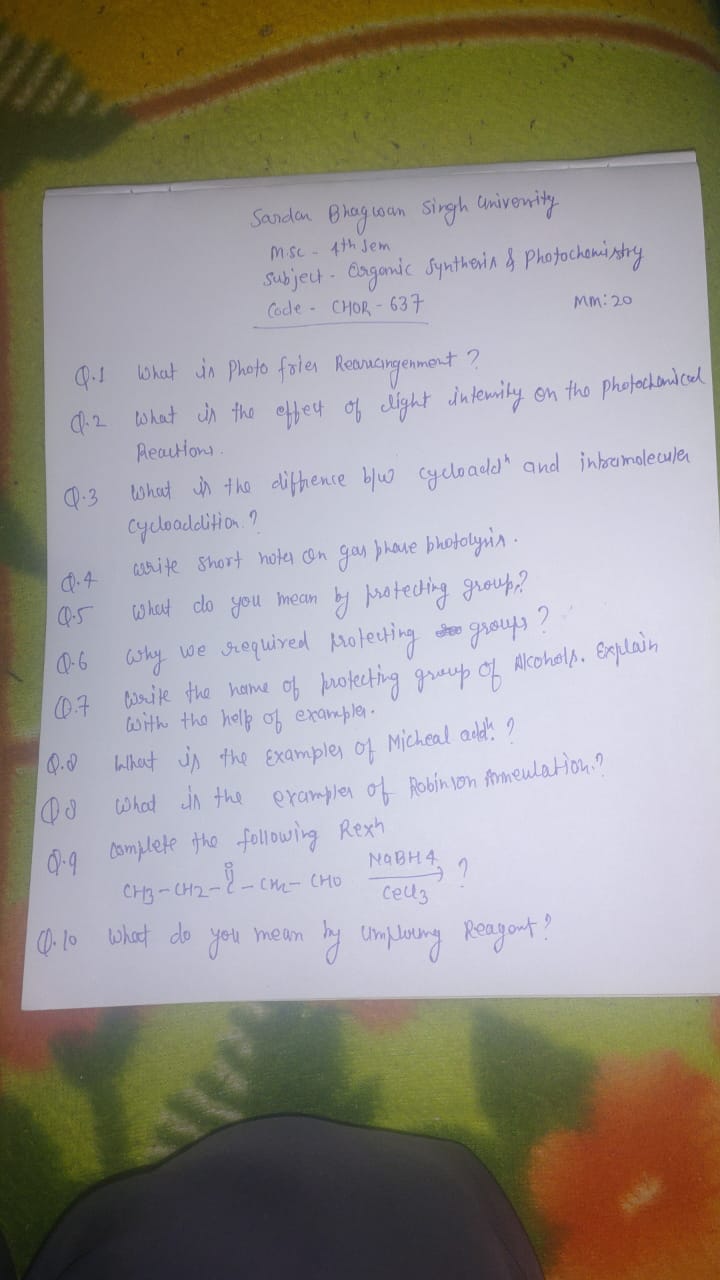 Sardar Bhagwan Singh University
M.Sc - 4th Sem
Subject - Organic Synthesis & Photochemistry
Code - CHOR - 637 MM: 20
Q.1 What is Photo fries Rearrangenment ?
Q.2 What is the effect of light intensity on the photochemical
Reactions.
Q.3 What is the diffrence b/w cycloaddn and intramolecular
cycloaddition ?
Q.4 Write Short notes on gas phase photolysis.
Q.5 What do you mean by protecting group?
Q.6 Why we required protecting groups ?
Q.7 Write the name of protecting group of Alcohols. Explain
with the help of examples.
Q.8 What is the Examples of Micheal addn. ?
Q8 What is the examples of Robinson Anneulation.?
Q.9 Complete the following Rexn
O
CH3-CH2-C-CH2-CHO NaBH4 ?
CeCl3
Q.10 What do you mean by Umploung Reagent ?